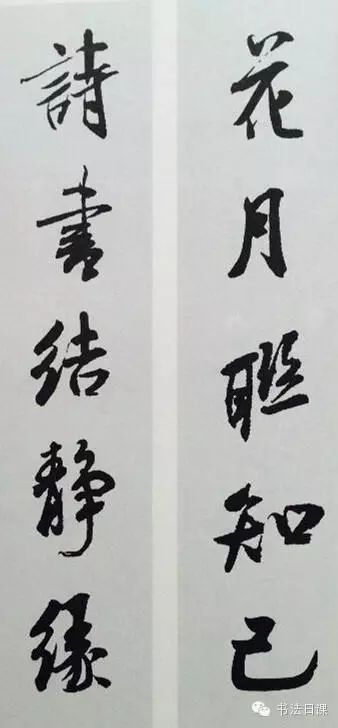 花月聯知己
詩書結靜緣
书法日课